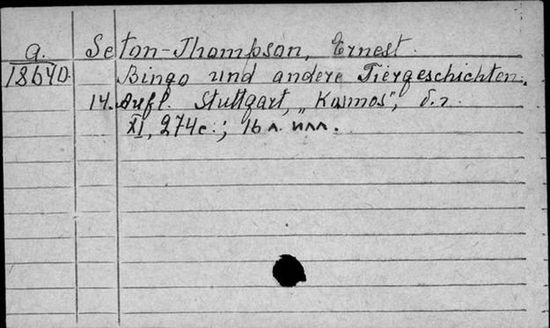 a. Seton-Thompson, Ernest.
18640. Bingo und andere Tiergeschichten.
14. Aufl. Stuttgart, „Kosmos“, б.г.
XI, 274с.; 16 л. илл.